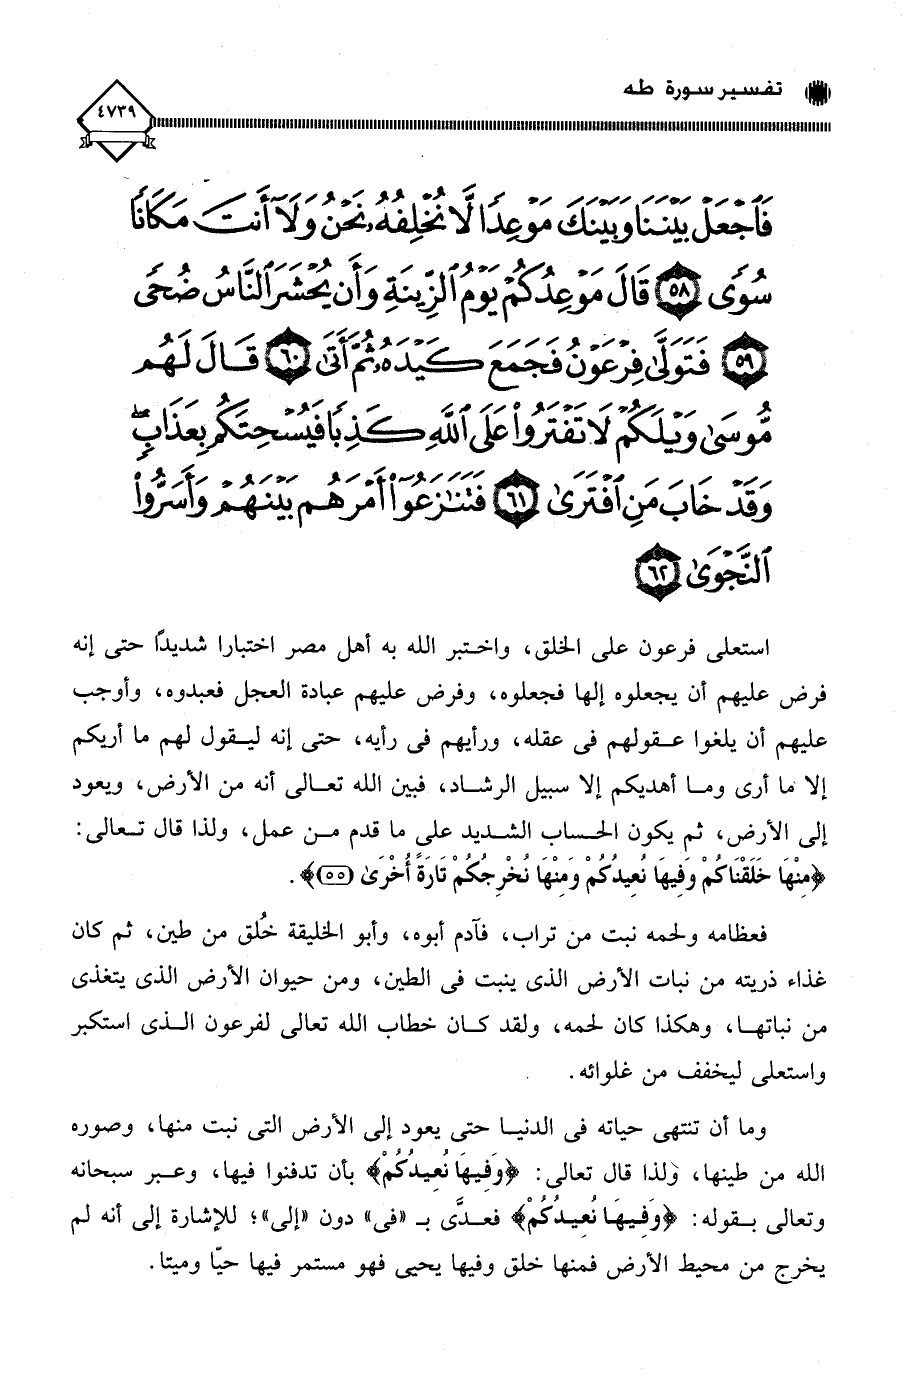 تفسير سورة طه
٤٧٣٩
فَٱجْعَلْ بَيْنَنَا وَبَيْنَكَ مَوْعِدًا لَّا نُخْلِفُهُۥ نَحْنُ وَلَآ أَنتَ مَكَانًا
سُوًى ٥٨ قَالَ مَوْعِدُكُمْ يَوْمُ ٱلزِّينَةِ وَأَن يُحْشَرَ ٱلنَّاسُ ضُحًى
٥٩ فَتَوَلَّىٰ فِرْعَوْنُ فَجَمَعَ كَيْدَهُۥ ثُمَّ أَتَىٰ ٦٠ قَالَ لَهُم
مُّوسَىٰ وَيْلَكُمْ لَا تَفْتَرُوا۟ عَلَى ٱللَّهِ كَذِبًا فَيُسْحِتَكُم بِعَذَابٍ ۖ
وَقَدْ خَابَ مَنِ ٱفْتَرَىٰ ٦١ فَتَنَٰزَعُوٓا۟ أَمْرَهُم بَيْنَهُمْ وَأَسَرُّوا۟
ٱلنَّجْوَىٰ ٦٢
استعلى فرعون على الخلق، واختبر الله به أهل مصر اختبارا شديدًا حتى إنه
فرض عليهم أن يجعلوه إلها فجعلوه، وفرض عليهم عبادة العجل فعبدوه، وأوجب
عليهم أن يلغوا عقولهم فى عقله، ورأيهم فى رأيه، حتى إنه ليقول لهم ما أريكم
إلا ما أرى وما أهديكم إلا سبيل الرشاد، فبين الله تعالى أنه من الأرض، ويعود
إلى الأرض، ثم يكون الحساب الشديد على ما قدم من عمل، ولذا قال تعالى:
﴿مِنْهَا خَلَقْنَاكُمْ وَفِيهَا نُعِيدُكُمْ وَمِنْهَا نُخْرِجُكُمْ تَارَةً أُخْرَىٰ (٥٥)﴾.
فعظامه ولحمه نبت من تراب، فآدم أبوه، وأبو الخليقة خُلق من طين، ثم كان
غذاء ذريته من نبات الأرض الذى ينبت فى الطين، ومن حيوان الأرض الذى يتغذى
من نباتها، وهكذا كان لحمه، ولقد كان خطاب الله تعالى لفرعون الذى استكبر
واستعلى ليخفف من غلوائه.
وما أن تنتهى حياته فى الدنيا حتى يعود إلى الأرض التى نبت منها، وصوره
الله من طينها، ولذا قال تعالى: ﴿وَفِيهَا نُعِيدُكُمْ﴾ بأن تدفنوا فيها، وعبر سبحانه
وتعالى بقوله: ﴿وَفِيهَا نُعِيدُكُمْ﴾ فعدَّى بـ «فى» دون «إلى»؛ للإشارة إلى أنه لم
يخرج من محيط الأرض فمنها خلق وفيها يحيى فهو مستمر فيها حيّا وميتا.